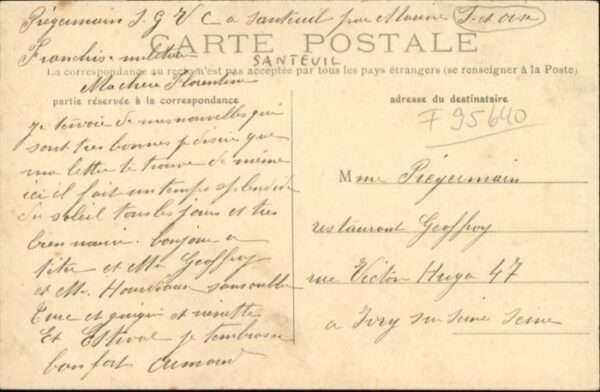 Piégermain S. G. V C a Santeuil par Marine S. et oise
Franchise militaire
CARTE POSTALE
SANTEUIL
La correspondance au recto n'est pas acceptée par tous les pays étrangers (se renseigner à la Poste)
Ma chere Florentine
partie réservée à la correspondance
je tenvoie de mes nouvelles qui
sont tres bonnes je désire que
ma lettre te trouve de même
ici il fait un temps splendide
du soleil tous les jours et tres
bien nourri. bonjour a
titre et Mme Geoffroy
et Mr. sans oublier
et quiqui et minette
Et Estival je tembrasse
bon fort Armand
adresse du destinataire
F 95640
Mme Piégermain
restaurant Geoffroy
rue Victor Hugo 47
a Ivry sur seine Seine